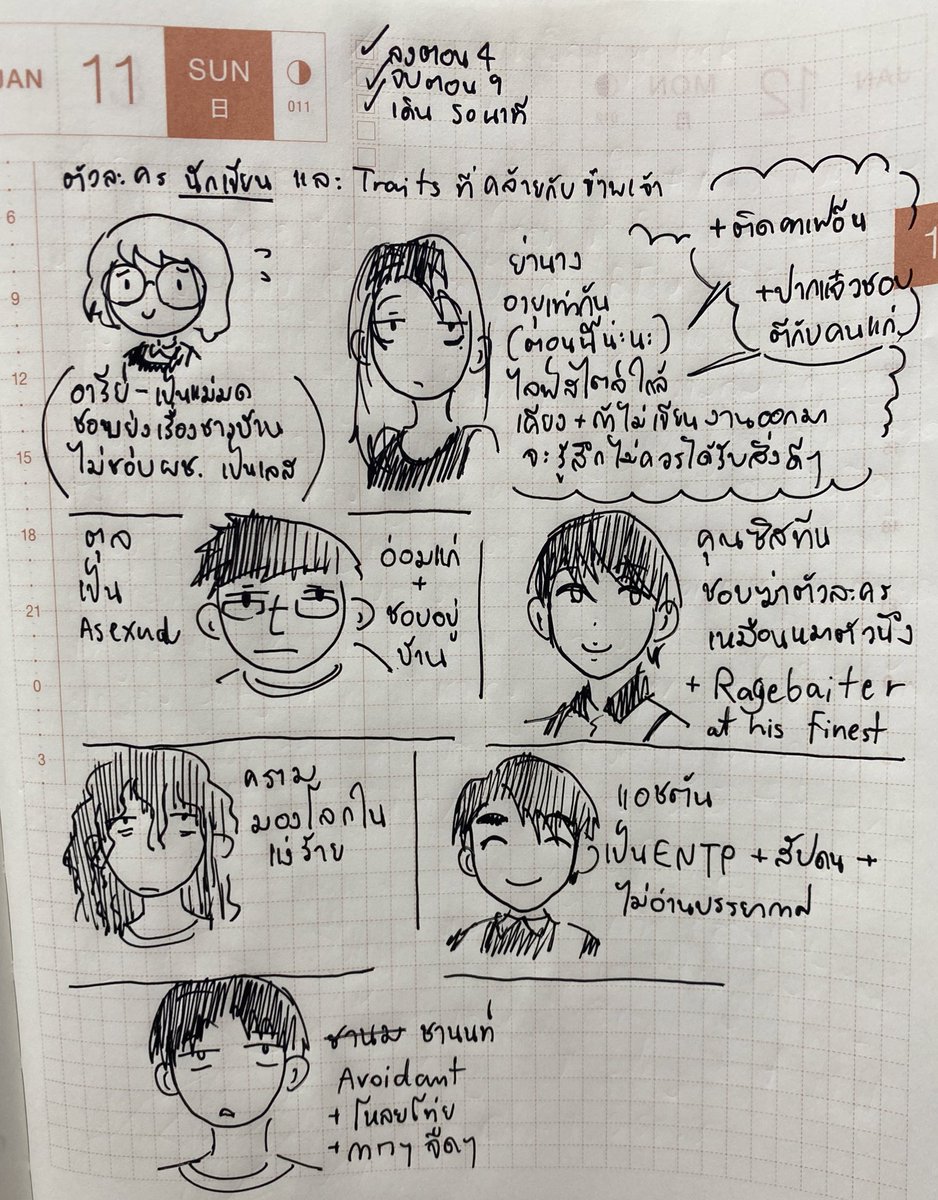 JAN 11 SUN
日
011
ลงตอน 4
จบตอน 9
เดิน 50 นาที
ตัวละคร นักเขียน และ Traits ที่คล้ายกับข้าพเจ้า
อารีย์ - เป็นแม่มด
ชอบยุ่งเรื่องชาวบ้าน
ไม่ชอบผช. เป็นเลส
ย่านาง
อายุเท่ากัน
(ตอนนี้น่ะนะ)
ไลฟ์สไตล์ใกล้
เคียง + ถ้าไม่เขียนงานออกมา
จะรู้สึกไม่ควรได้รับสิ่งดีๆ
+ ติดคาเฟอีน
+ ปากแจ๋วชอบ
ตีกับคนแก่
ตุล
เป็น
Asexual
อ่อมแก่
+
ชอบอยู่
บ้าน
คุณซิสทีน
ชอบฆ่าตัวละคร
เหมือนหมาตัวนึง
+ Ragebaiter
at his finest
คราม
มองโลกใน
แง่ร้าย
แอชตัน
เป็น ENTP + สัปดน +
ไม่อ่านบรรยากาศ
ชานนท์
Avoidant
+ โหลยโท่ย
+ กากๆ จืดๆ
6
9
12
15
18
21
0
3